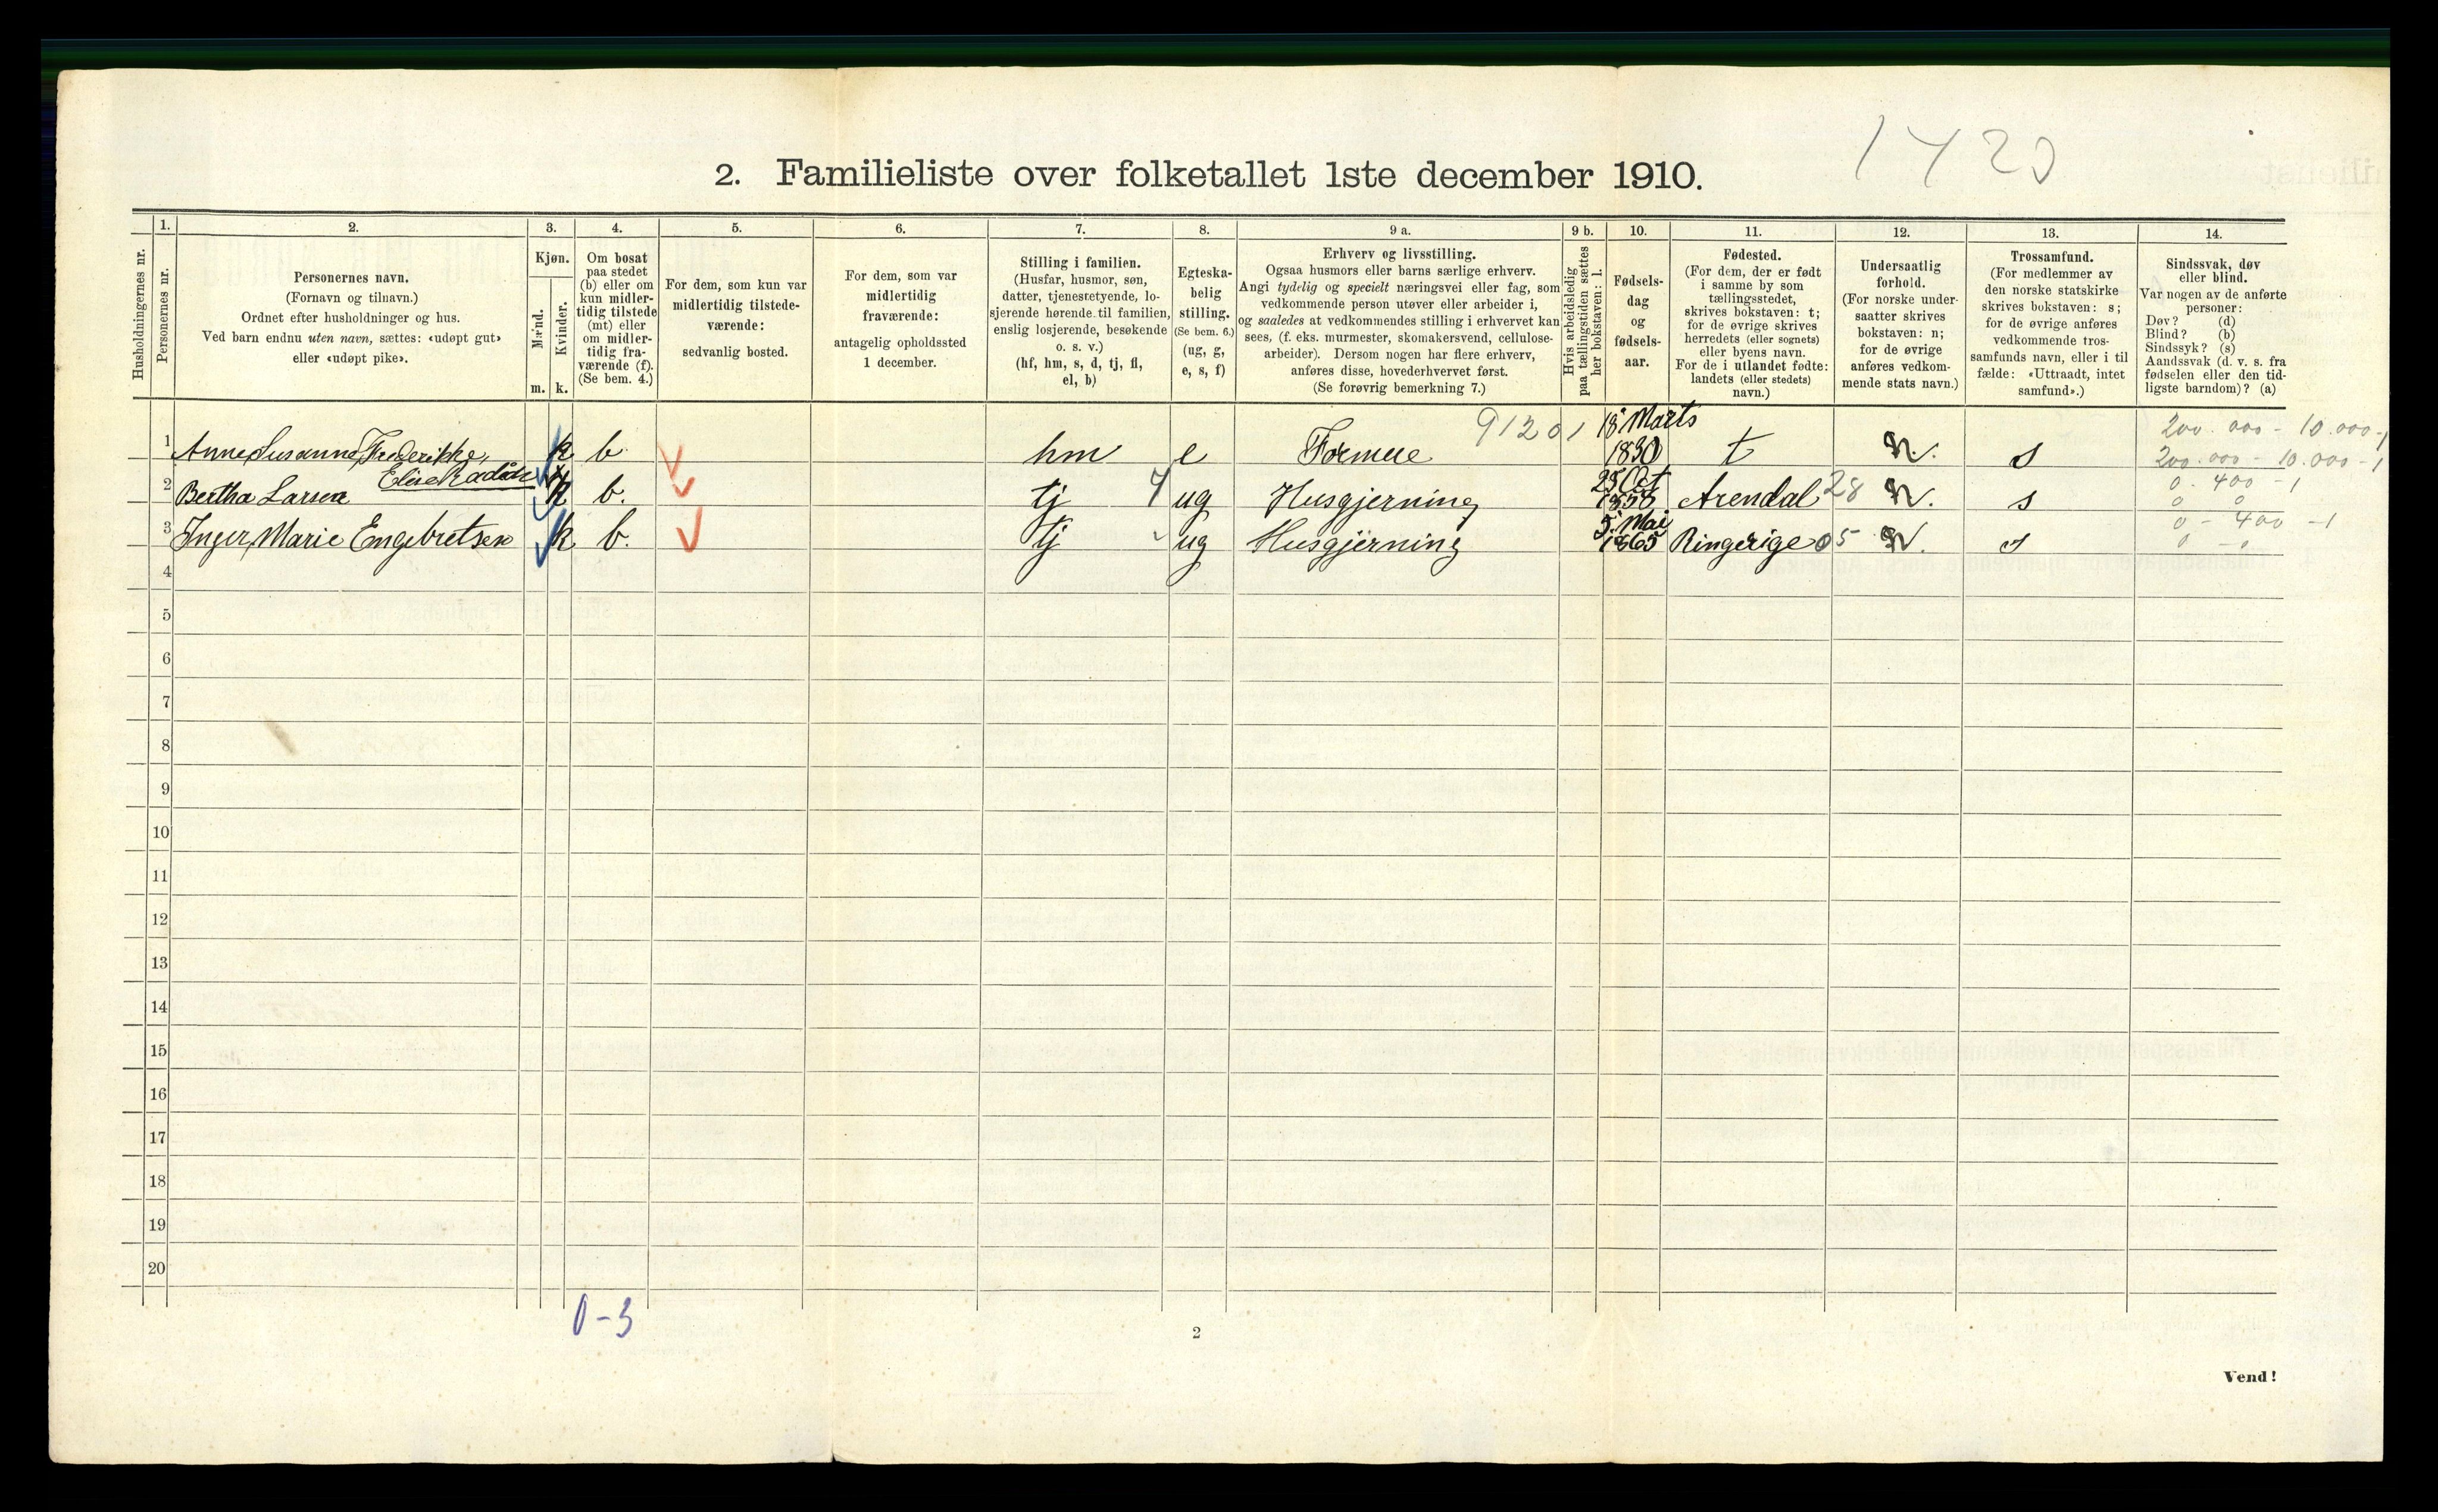 1420
2. Familieliste over folketallet 1ste december 1910.
Husholdningernes nr.
1.
Personernes nr.
2.
Personernes navn.
(Fornavn og tilnavn.)
Ordnet efter husholdninger og hus.
Ved barn endnu uten navn, sættes: «udøpt gut»
eller «udøpt pike».
3.
Kjøn.
Mænd.
Kvinder.
m. k.
4.
Om bosat
paa stedet
(b) eller om
kun midler-
tidig tilstede
(mt) eller
om midler-
tidig fra-
værende (f).
(Se bem. 4.)
5.
For dem, som kun var
midlertidig tilstede-
værende:
sedvanlig bosted.
6.
For dem, som var
midlertidig
fraværende:
antagelig opholdssted
1 december.
7.
Stilling i familien.
(Husfar, husmor, søn,
datter, tjenestetyende, lo-
sjerende hørende til familien,
enslig losjerende, besøkende
o. s. v.)
(hf, hm, s, d, tj, fl,
el, b)
8.
Egteska-
belig
stilling.
(Se bem. 6.)
(ug, g,
e, s, f)
9 a.
Erhverv og livsstilling.
Ogsaa husmors eller barns særlige erhverv.
Angi tydelig og specielt næringsvei eller fag, som
vedkommende person utøver eller arbeider i,
og saaledes at vedkommendes stilling i erhvervet kan
sees, (f. eks. murmester, skomakersvend, cellulose-
arbeider). Dersom nogen har flere erhverv,
anføres disse, hovederhvervet først.
(Se forøvrig bemerkning 7.)
9 b.
Hvis arbeidsledig
paa tællingstiden sættes
her bokstaven: l.
10.
Fødsels-
dag
og
fødsels-
aar.
11.
Fødested.
(For dem, der er født
i samme by som
tællingsstedet,
skrives bokstaven: t;
for de øvrige skrives
herredets (eller sognets)
eller byens navn.
For de i utlandet fødte:
landets (eller stedets)
navn.)
12.
Undersaatlig
forhold.
(For norske under-
saatter skrives
bokstaven: n;
for de øvrige
anføres vedkom-
mende stats navn.)
13.
Trossamfund.
(For medlemmer av
den norske statskirke
skrives bokstaven: s;
for de øvrige anføres
vedkommende tros-
samfunds navn, eller i til
fælde: «Uttraadt, intet
samfund».)
14.
Sindssvak, døv
eller blind.
Var nogen av de anførte
personer:
Døv? (d)
Blind? (b)
Sindssyk? (s)
Aandssvak (d. v. s. fra
fødselen eller den tid-
ligste barndom)? (a)
1 Anne Susanne Frederikke, k b hm e Formue 91201 18 Marts 1830 t n. s 200.000 - 10.000 - 1
200.000 - 10.000 - 1
Elise
2 Bertha Larsen k b. tj 4 ug Husgjerning 25 Oct 1858 Arendal 28 n. s 0 - 400 - 1
0 0
3 Inger Marie Engebretsen k b. tj ug Husgjerning 5. Mai 1865 Ringerige 05 N. s 0 - 400 - 1
0 - 0
4
5
6
7
8
9
10
11
12
13
14
15
16
17
18
19
20
0-3
2
Vend!